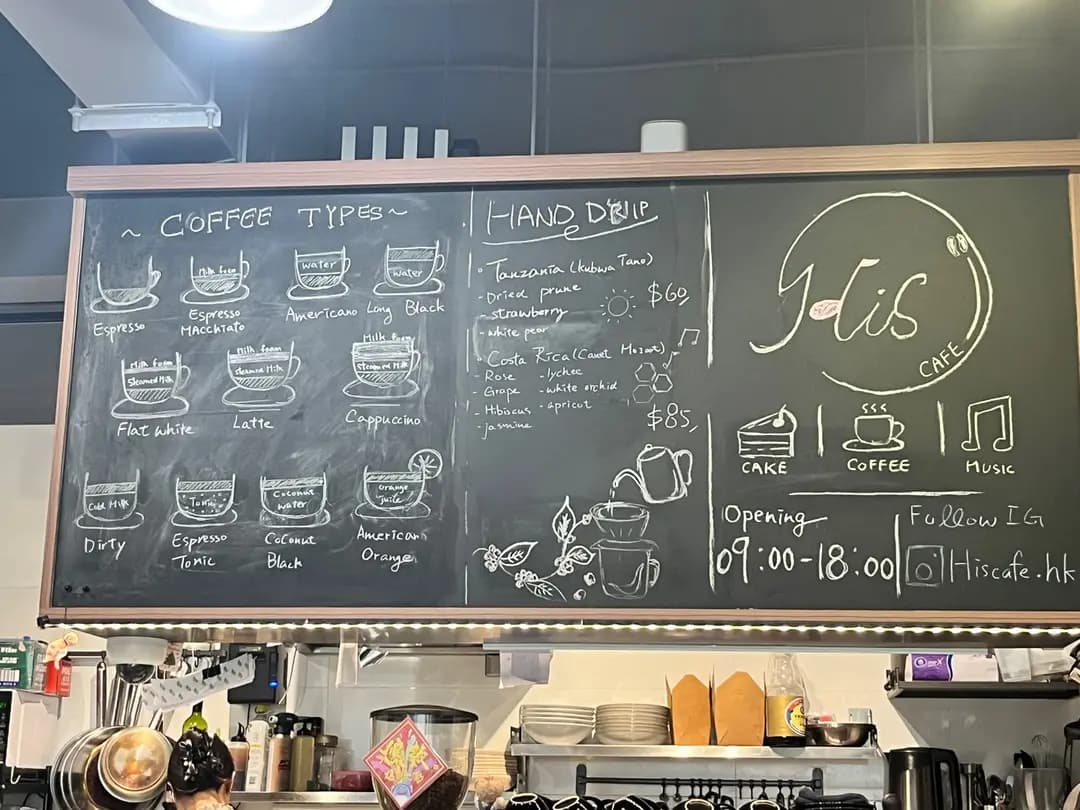 ~ COFFEE TYPES ~
Espresso
Milk foam
Espresso
MACCHIATO
water
Americano
water
Long Black
Milk foam
Steamed Milk
Flat white
Milk foam
Steamed Milk
Latte
Milk foam
Steamed Milk
Cappuccino
Cold Milk
Dirty
Tonic
Espresso
Tonic
Coconut
water
Coconut
Black
orange
juice
American
Orange
HAND DRIP
Tanzania (kubwa Tano)
- Dried prune
- strawberry
- white pear
$60
Costa Rica (Canet Mozart)
- Rose - lychee
- Grape - white orchid
- Hibiscus - apricot
- jasmine
$85
His
CAFE
CAKE
COFFEE
MUSIC
Opening
09:00-18:00
Follow IG
Hiscafe.hk